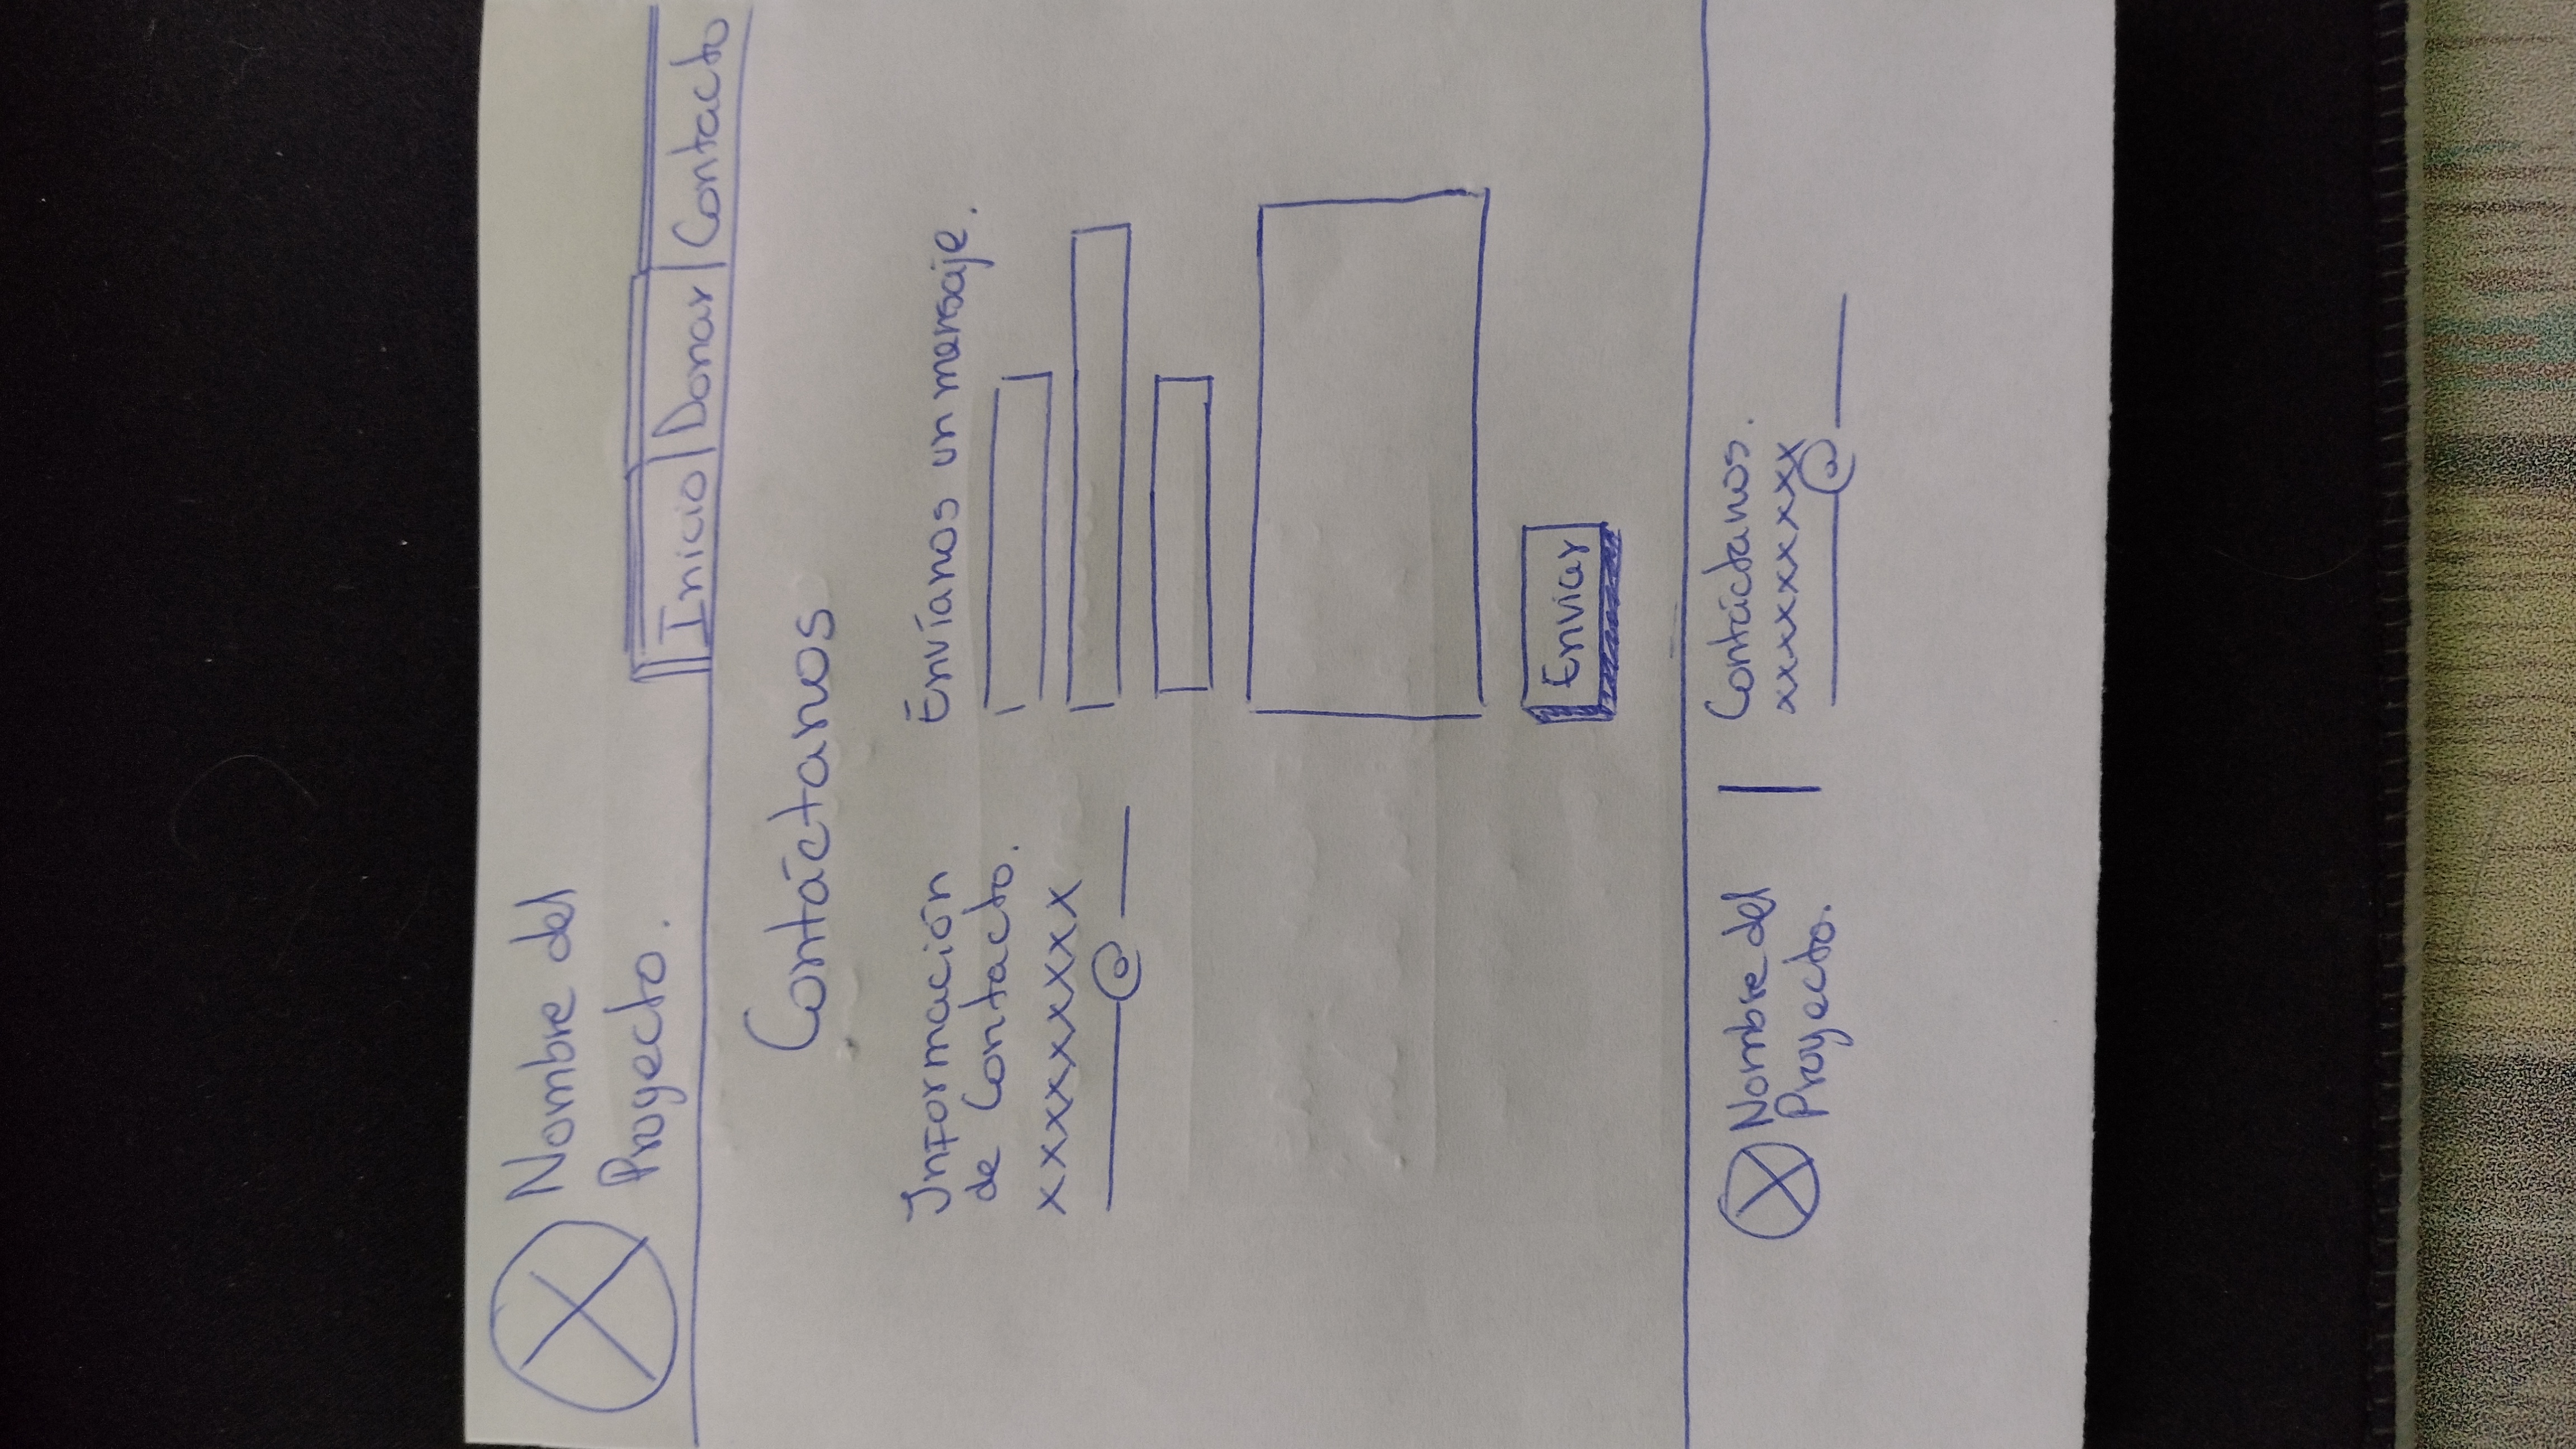 Nombre del
Proyecto.
Inicio | Donar | Contacto
Contáctanos
Información
de Contacto.
xxxxxxxxx
@
Envíanos un mensaje.
Enviar
Nombre del
Proyecto.
Contáctanos.
xxxxxxxxx
@